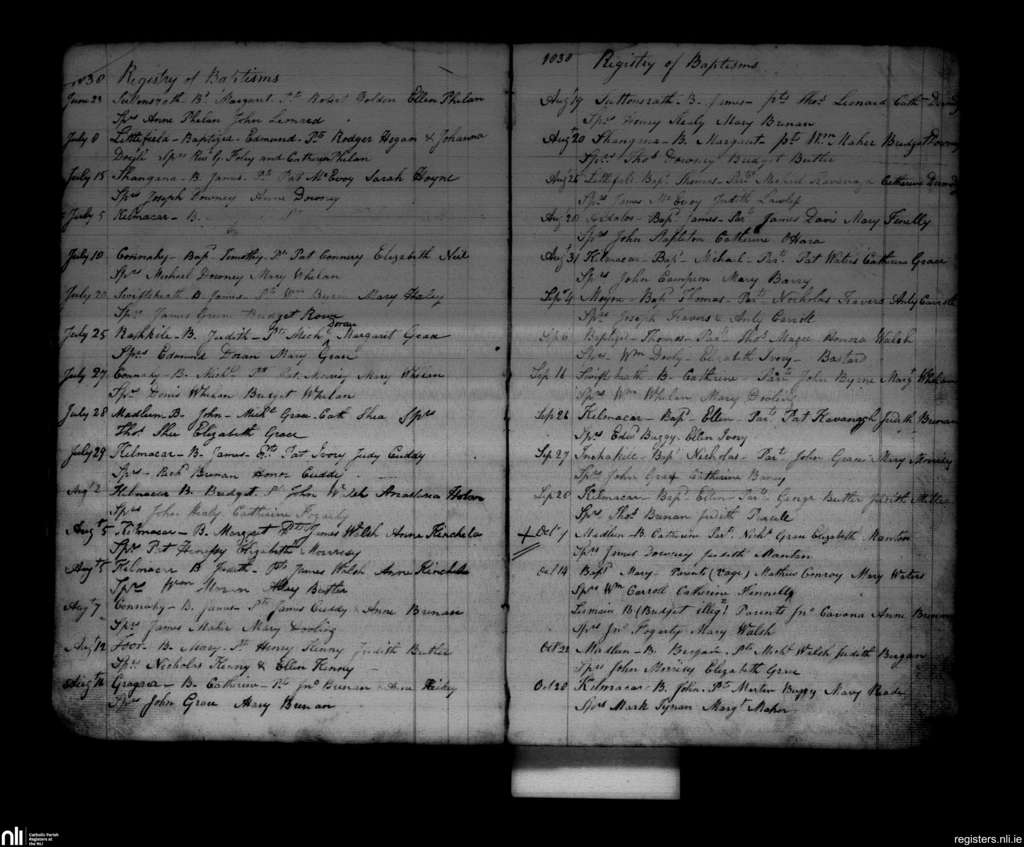 1830 Registry of Baptisms
June 23 Suttonsrath Bt Margaret. Pts Robert Bolden Ellen Phelan
Sprs Anne Phelan John Leonard
July 8 Littlefield - Baptized - Edmund - Pts Rodger Hogan & Johanna
Doyle Sprs Revd G. Foley and Catherine Phelan
July 15 Shangana - B. James - Pts Pat McEvoy Sarah Coyne
Sprs Joseph Downey Anne Downey
July 5 Kilmacar - B.
July 10 Connahy - Bapt Timothy. Pts Pat Connery Elizabeth Neil
Sprs Michael Downey Mary Whelan
July 20 Swiftsheath B. James. Pts Wm Byrne Mary Healy
Sprs James Bridget
July 25 Rathkile - B. Judith - Pts Michl Doran Margaret Grace
Sprs Edmund Doran Mary Grace
July 27 Connahy - B. Michl - Pts Pat. Mary Whelan
Sprs Denis Whelan Bridget Whelan
July 28 Madlum - B. John - Michl Grace Cath Shea Sprs
Thos Shee Elizabeth Grace
July 29 Kilmacar - B. James - Pts Pat Ivory Judy Cuddy
Sprs - Richd Brenan Honor Cuddy
Augt 2 Kilmacar B. Bridget Pts John Welsh Anastasia
Sprs John Healy Catherine Fogarty
Augt 5 Kilmacar - B. Margaret Pts James Walsh Anne Kinchela
Sprs Pat Hennessy Elizabeth Morrissy
Augt 5 Kilmacar B Judith - Pts James Walsh Anne Kinchela
Sprs Wm Moran Mary Butler
Augt 7 Connahy - B. James - Pts James Cuddy & Anne Brenan
Sprs James Maher Mary Dooling
Augt 12 Foor - B. Mary - Pts Henry Kenny Judith Butler
Sprs Nicholas Kenny & Ellen Kenny
Augt 14 Gragara - B. Catherine - Pts Jno Brenan & Anne Hickey
Sprs John Grace Mary Brenan
1830 Registry of Baptisms
Augt 19 Suttonsrath - B. James - pts Thos Leonard Cath Dowdy
Sprs Henry Healy Mary Brenan
Augt 20 Shangana - B. Margaret pts Wm Maher Bridget Downey
Sprs Thos Downey Bridget Butler
Littlefield Bapt Thomas - Parts Michael Kavanagh Catherine
Sprs James McEvoy Judith Lawlor
Aug 20 - Bapt James - Parts James Davis Mary Fenelly
Sprs John Stapleton Catherine OHara
Augt 31 Kilmacar - Bapt - Michael - Parts Pat Waters Catherine Grace
Sprs John Campion Mary Barry
Sept 4 Moyne - Bapt Thomas - Parts Nicholas Travers Anty Carroll
Sprs Joseph Travers & Anty Carroll
Sep 6 Baptized - Thomas - Parts Thos Magee Honora Walsh
Sprs - Wm Dooly - Elizabeth Ivory - Bastard
Sep 11 Swiftsheath B - Catherine - Parts John Byrne Margt Whelan
Sprs Wm Whelan Mary Dooling
Sep 26 Kilmacar - Bapt - Ellen - Parts Pat Kavanagh Judith Brenan
Sprs Edwd Buggy - Ellen Ivory
Sep 27 - Bapt Nicholas - Parts John Grace Mary Morrissy
Sprs John Grace Catherine Barry
Sep 28 Kilmacar - Bapt Ellen - Parts - George Butler Judith
Sprs Thos Brenan Judith
+ Oct 1 Madlum B. Catherine Parts Nichs Grace Elizabeth Manton
Sprs James Downey Judith Manton
Oct 14 Bapt Mary - Parents (vage) Mathew Conroy Mary Waters
Sprs Wm Carroll Catherine Fennelly
Lismain B (Bridget illegt) Parents Jno Cavana Anne Brennan
Sprs Jno Fogarty Mary Walsh
Oct 22 Madlum - B. Pts Michl Welsh Judith Bergan
Sprs John Morrissy Elizabeth Grace
Oct 28 Kilmacar - B. John. Pts Martin Buggy Mary Reade
Sprs Mark Tynan Margt Maher
nli Catholic Parish
Registers at
the NLI
registers.nli.ie